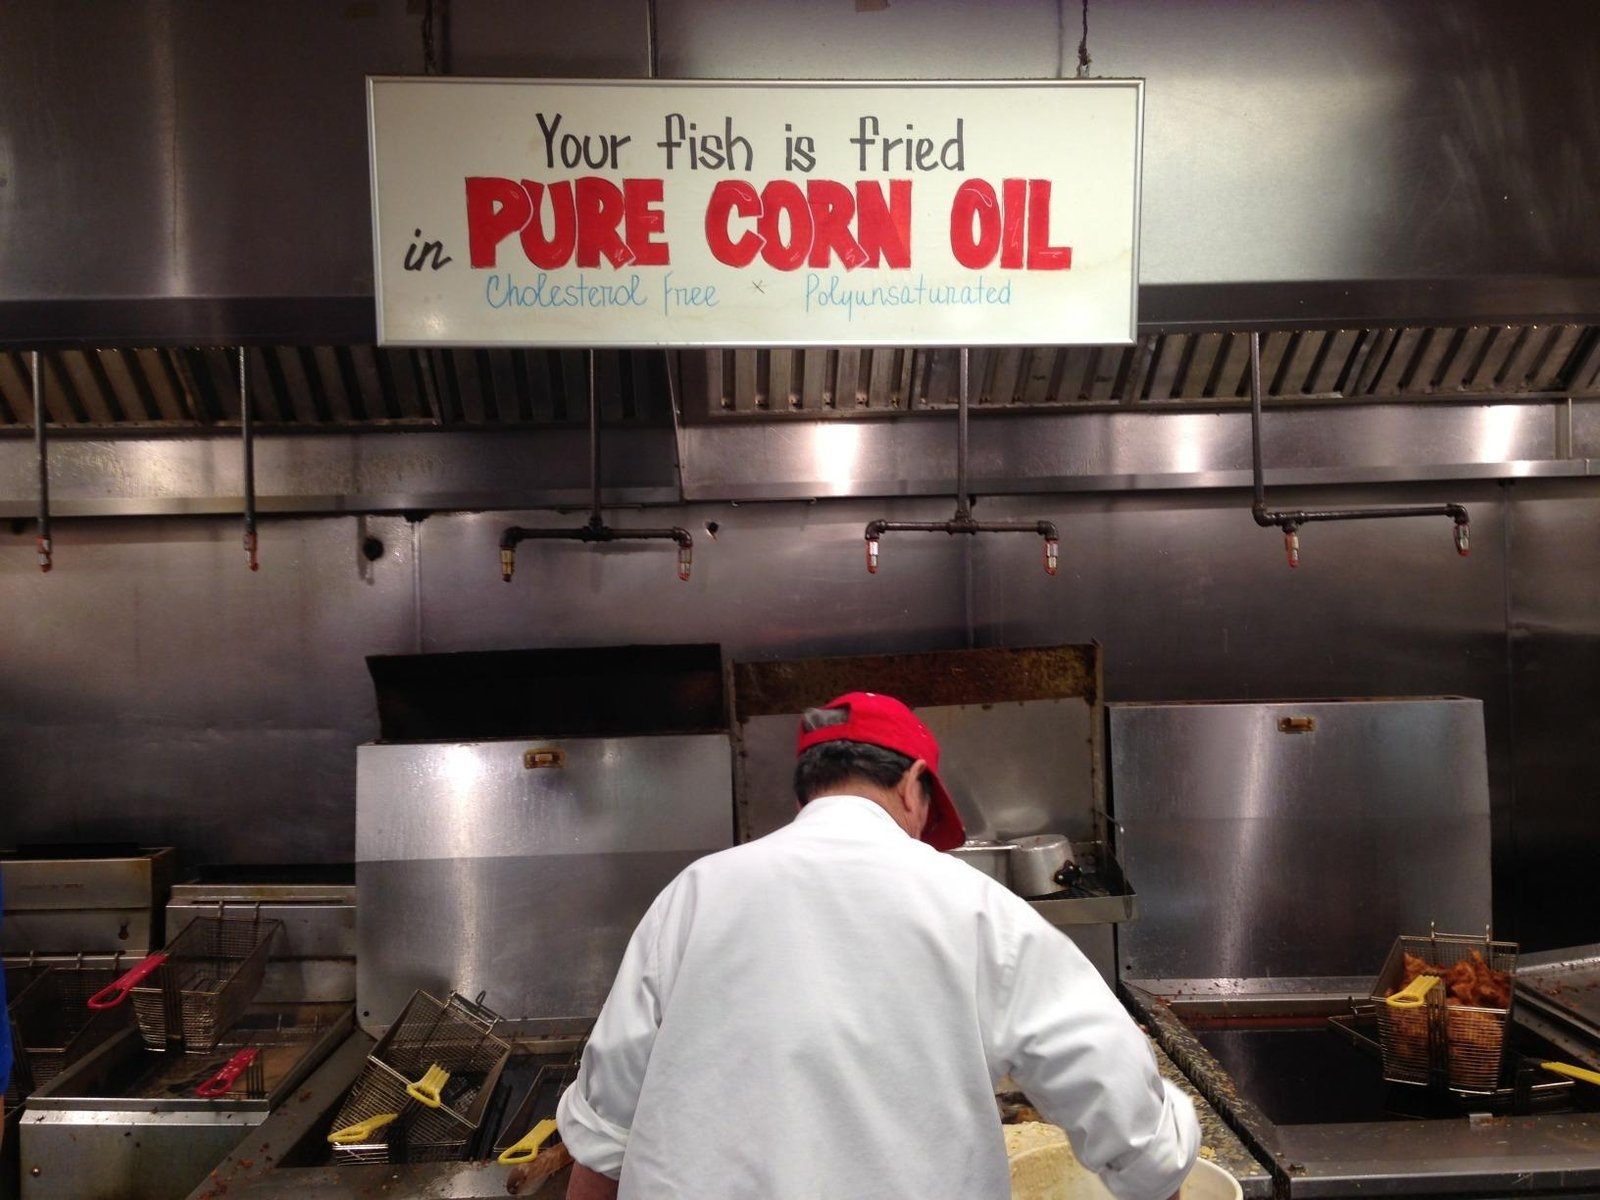 Your fish is fried
in PURE CORN OIL
Cholesterol Free × Polyunsaturated